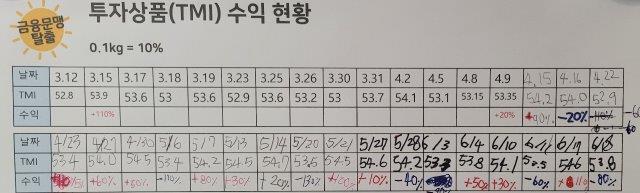 금융문맹
탈출
투자상품(TMI) 수익 현황
0.1kg = 10%
날짜 3.12 3.15 3.17 3.18 3.19 3.23 3.25 3.26 3.30 3.31 4.2 4.5 4.8 4.9 4.15 4.16 4.22
TMI 52.8 53.9 53.6 53 53.6 52.9 53.6 53.2 53 53.7 54.1 53.1 53.15 53.35 54.2 54.0 52.9
수익 +110% +20% +90% -20% -110% -60
날짜 4/23 4/27 4/30 5/6 5/7 5/13 5/14 5/20 5/21 5/27 5/28 6/3 6/4 6/10
TMI 53.4 54.0 54.5 53.4 54.2 54.5 53.6 54.5 54.6 54.2 53.8 54.1 54.6 53.8
수익 +60% +50% -110% +80% +30% +20% -130% +10% -40% +50% +30% -60% -80%